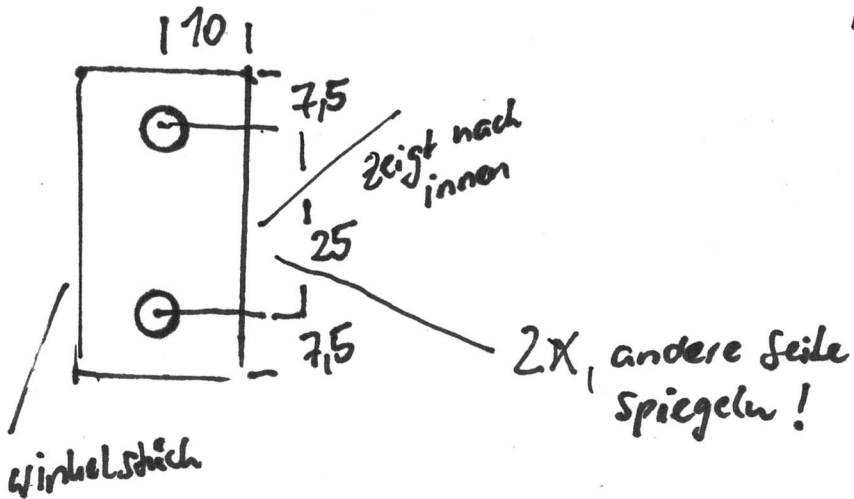 10
7,5
zeigt nach
innen
25
7,5
2x, andere Seite
spiegeln!
Winkelstück